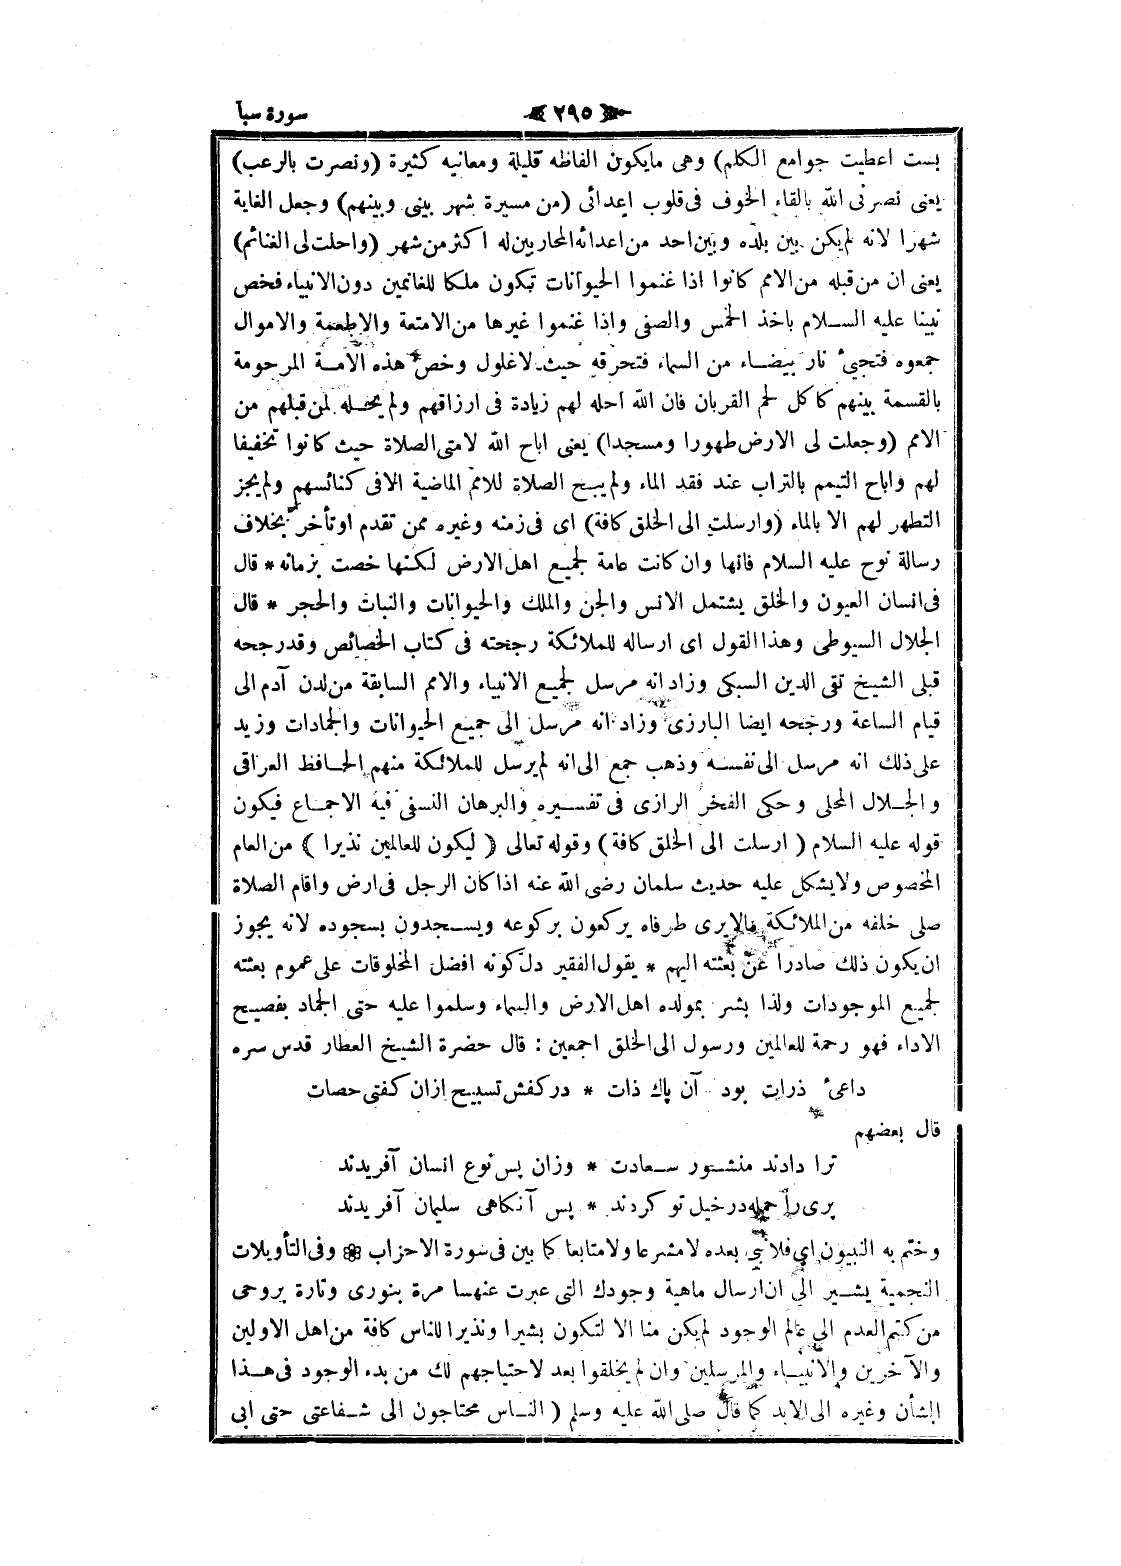 سورة سبأ
٢٩٥
بست اعطيت جوامع الكلم) وهى مايكون الفاظه قليلة ومعانيه كثيرة (ونصرت بالرعب)
يعنى نصرنى الله بالقاء الخوف فى قلوب اعدائى (من مسيرة شهر بينى وبينهم) وجعل الغاية
شهرا لانه لم يكن بين بلده وبين احد من اعدائه المحاربين له اكثر من شهر (واحلت لى الغنائم)
يعنى ان من قبله من الامم كانوا اذا غنموا الحيوانات تكون ملكا للغانمين دون الانبياء فخص
نبينا عليه السلام باخذ الخمس والصفى واذا غنموا غيرها من الامتعة والاطعمة والاموال
جمعوه فتجيئ نار بيضاء من السماء فتحرقه حيث لاغلول وخص هذه الامة المرحومة
بالقسمة بينهم كاكل لحم القربان فان الله احله لهم زيادة فى ارزاقهم ولم يحله لمن قبلهم من
الامم (وجعلت لى الارض طهورا ومسجدا) يعنى اباح الله لامتى الصلاة حيث كانوا تخفيفا
لهم واباح التيمم بالتراب عند فقد الماء ولم يبح الصلاة للامم الماضية الا فى كنائسهم ولم يجز
التطهر لهم الا بالماء (وارسلت الى الخلق كافة) اى فى زمنه وغيره ممن تقدم او تأخر بخلاف
رسالة نوح عليه السلام فانها وان كانت عامة لجميع اهل الارض لكنها خصت بزمانه * قال
فى انسان العيون والخلق يشتمل الانس والجن والملك والحيوانات والنبات والحجر * قال
الجلال السيوطى وهذا القول اى ارساله للملائكة رجحته فى كتاب الخصائص وقد رجحه
قبلى الشيخ تقى الدين السبكى وزاد انه مرسل لجميع الانبياء والامم السابقة من لدن آدم الى
قيام الساعة ورجحه ايضا البارزى وزاد انه مرسل الى جميع الحيوانات والجمادات وزيد
على ذلك انه مرسل الى نفسه وذهب جمع الى انه لم يرسل للملائكة منهم الحافظ العراقى
والجلال المحلى وحكى الفخر الرازى فى تفسيره والبرهان النسفى فيه الاجماع فيكون
قوله عليه السلام (ارسلت الى الخلق كافة) وقوله تعالى (ليكون للعالمين نذيرا) من العام
المخصوص ولا يشكل عليه حديث سلمان رضى الله عنه اذا كان الرجل فى ارض واقام الصلاة
صلى خلفه من الملائكة مالا يرى طرفاه يركعون بركوعه ويسجدون بسجوده لانه يجوز
ان يكون ذلك صادرا عن بعثته اليهم * يقول الفقير دل كونه افضل المخلوقات على عموم بعثته
لجميع الموجودات ولذا بشر بمولده اهل الارض والسماء وسلموا عليه حتى الجماد بفصيح
الاداء فهو رحمة للعالمين ورسول الى الخلق اجمعين : قال حضرة الشيخ العطار قدس سره
داعئ ذرات بود آن پاك ذات * در كفش تسبيح ازان كفتى حصات
قال بعضهم
ترا دادند منشور سعادت * وزان پس نوع انسان آفريدند
پرى را جمله در خيل تو كردند * پس آنكاهى سليمان آفريدند
وختم به النبيون اى فلا نبى بعده لا مشرعا ولا متابعا كما بين فى سورة الاحزاب ❁ وفى التأويلات
النجمية يشير الى ان ارسال ماهية وجودك التى عبرت عنهسا مرة بنورى وتارة بروحى
من كتم العدم الى عالم الوجود لم يكن منا الا لتكون بشيرا ونذيرا للناس كافة من اهل الاولين
والآخرين والانبياء والمرسلين وان لم يخلقوا بعد لاحتياجهم لك من بدء الوجود فى هذا
الشأن وغيره الى الابد كما قال صلى الله عليه وسلم (الناس محتاجون الى شفاعتى حتى ابى